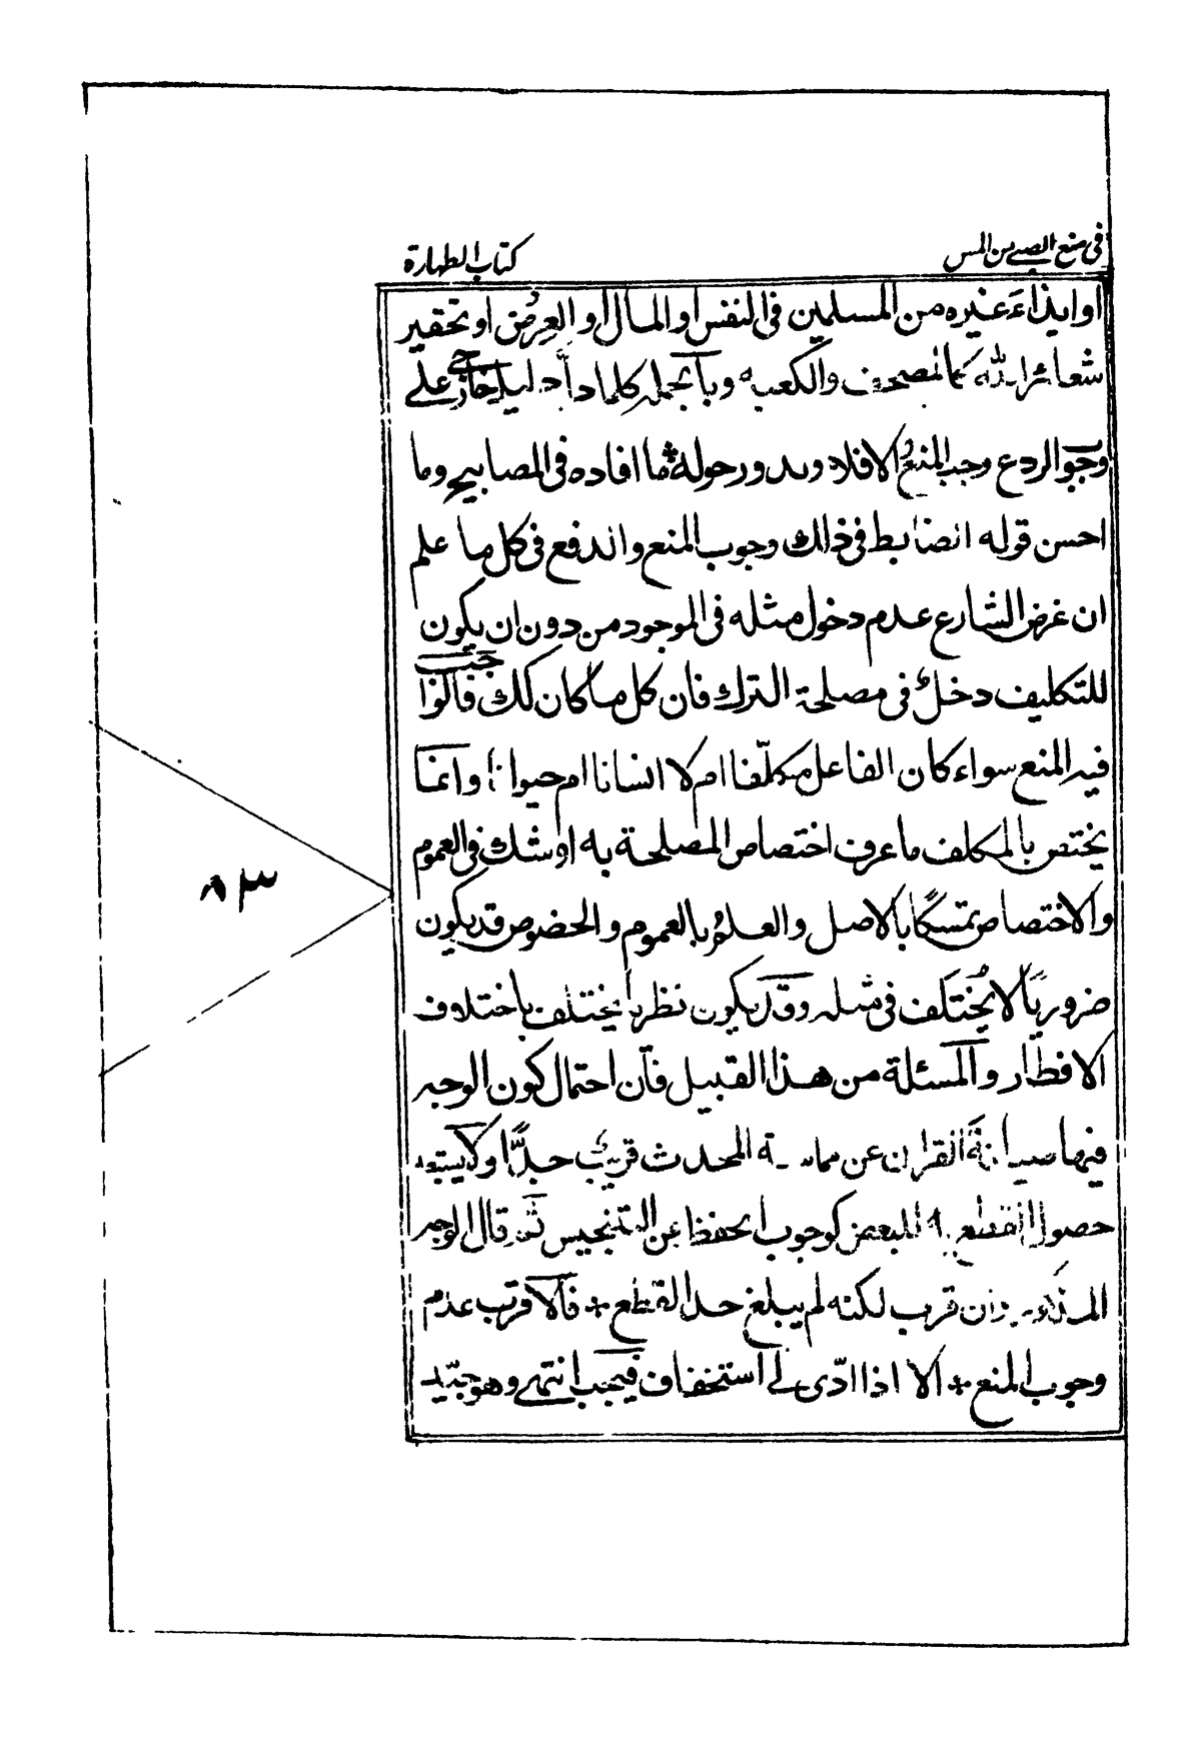 فى منع الصبے من المس
كتاب الطهارة
او ايذاء غيره من المسلمين فى النفس او المال او العرض او تحقير
شعائر الله كالمصحف والكعبه وبالجمله كلما دل دليل خارجى على
وجوب الردع وجب المنع والا فلا ويدور حوله ما افاده فى المصابيح وما
احسن قوله الضابط فى ذلك وجوب المنع والدفع فى كل ما علم
ان غرض الشارع عدم دخول مثله فى الموجود من دون ان يكون
للتكليف دخل فى مصلحة الترك فان كل ما كان كك فالواجب
فيه المنع سواء كان الفاعل مكلّفا ام لا انسانا ام حيوانا وانما
يختص بالمكلف ما عرف اختصاص المصلحة به او شك فى العموم
والاختصاص تمسكا بالاصل والعلم بالعموم والخصوص قد يكون
ضروريا لا يختلف فى مثله وقد يكون نظريا يختلف باختلاف
الانظار والمسئلة من هذا القبيل فان احتمال كون الوجه
فيها صيانة القران عن مماسة المحدث قريب جدّا ولا يستبعد
حصول القطع به للبعض كوجوب الحفظ عن التنجيس ثم قال الوجه
المذكور وان قرب لكنه لم يبلغ حد القطع + فالاقرب عدم
وجوب المنع + الا اذا ادّى الے استخفاف فيجب انتهے وهو جيّد
٨٣